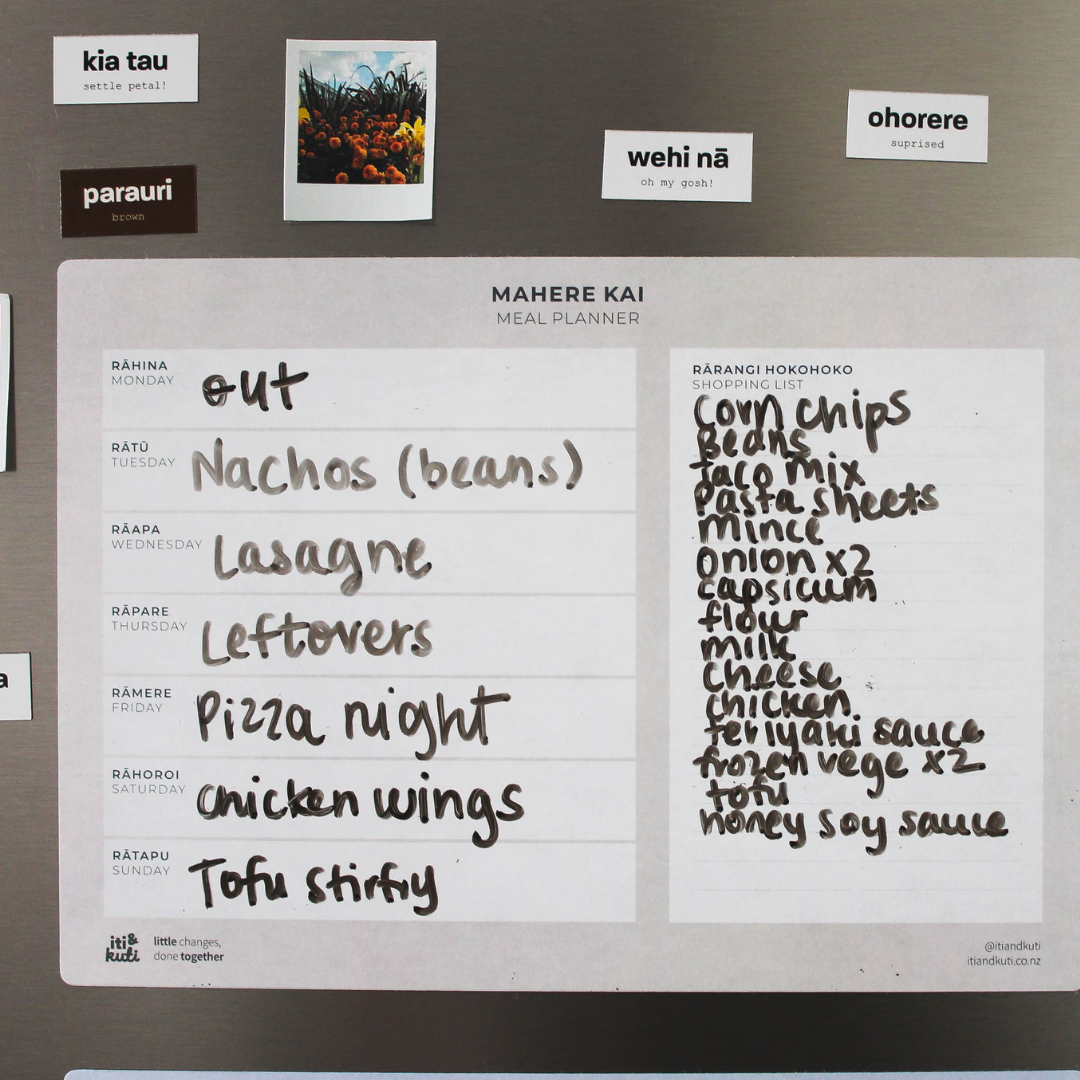 kia tau
settle petal!
parauri
brown
wehi nā
oh my gosh!
ohorere
suprised
MAHERE KAI
MEAL PLANNER
RĀHINA
MONDAY
out
RĀTŪ
TUESDAY
Nachos (beans)
RĀAPA
WEDNESDAY
Lasagne
RĀPARE
THURSDAY
Leftovers
RĀMERE
FRIDAY
Pizza night
RĀHOROI
SATURDAY
chicken wings
RĀTAPU
SUNDAY
Tofu stirfry
RĀRANGI HOKOHOKO
SHOPPING LIST
corn chips
Beans
taco mix
Pasta sheets
mince
onion x2
capsicum
flour
milk
cheese
chicken
teriyaki sauce
frozen vege x2
tofu
honey soy sauce
a
iti&
kuti
little changes,
done together
@itiandkuti
itiandkuti.co.nz